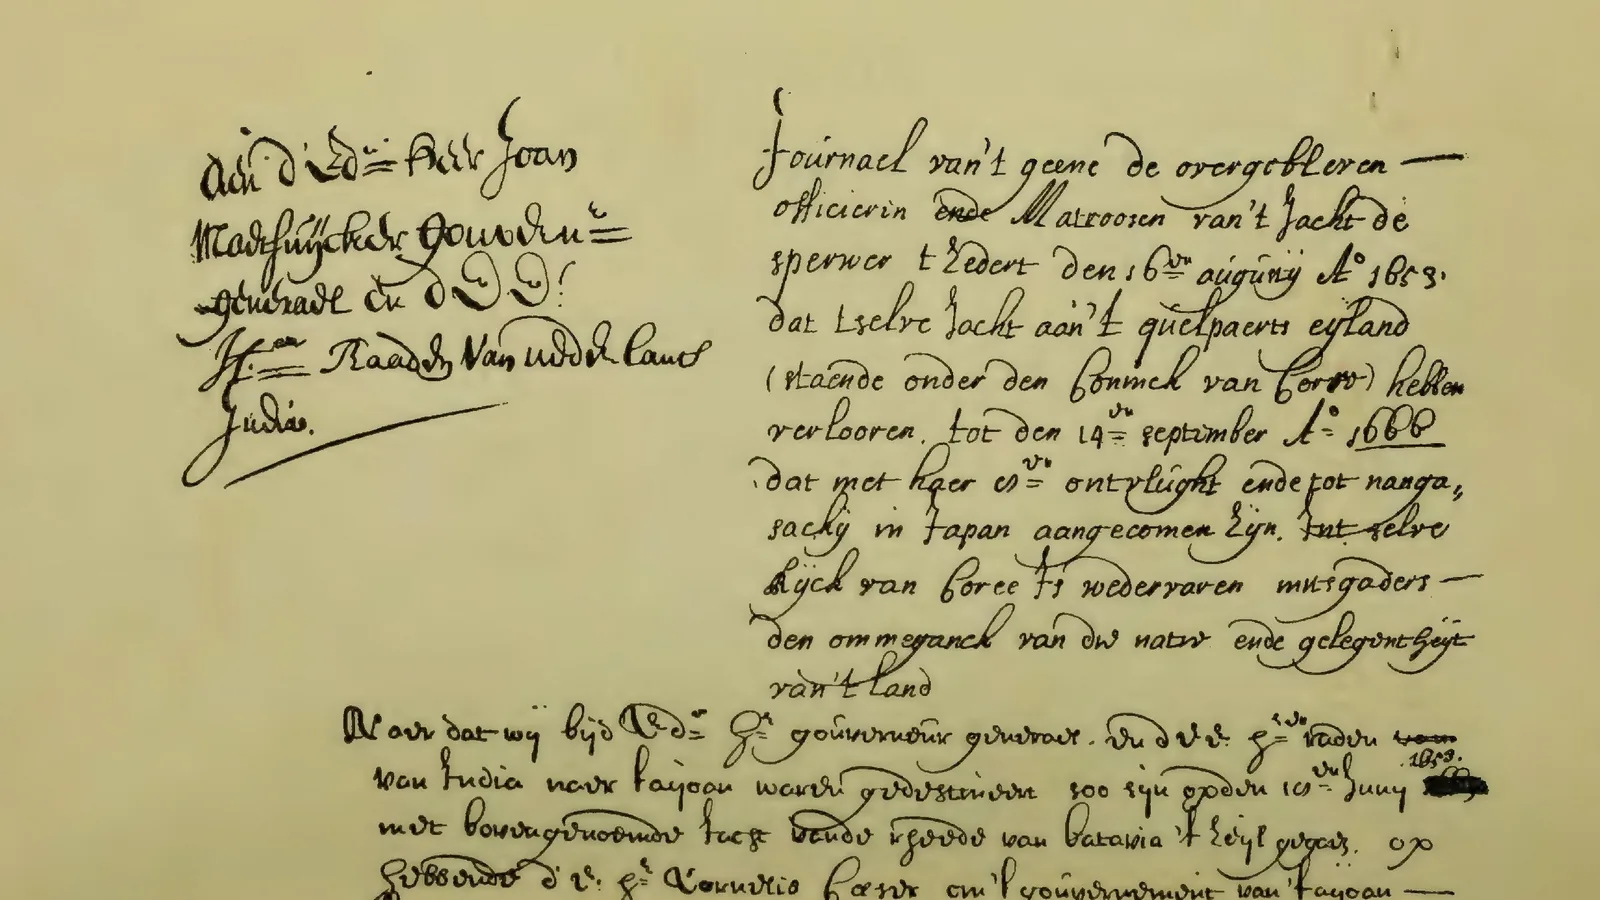 Aen d' Ed.ⁿ Heer Joan
Maetsuijcker Gouvern.ʳ
generael en d' E E:
H.ʳᵉⁿ Raaden van nederlants
India.
Journael van't geene de overgebleven
officieren ende Matroosen van't Jacht de
sperwer 't zedert den 16.ᵉⁿ augustij A.° 1653.
dat tselve Jacht aan't quelpaerts eijland
(staende onder den Coninck van Coree) hebben
verlooren. tot den 14.ᵉⁿ september A.° 1666
dat met haer 8.ᵉⁿ ontvlught ende tot nanga„
sackij in Japan aangecomen zijn. Int selve
Rijck van Coree is wedervaren mitsgaders
den ommeganck van die natie ende gelegentheijt
van't land
Naer dat wij bij d Ed.ᵉ H.ʳ gouverneur generael. en d E E: H.ʳᵉⁿ raden
1653.
van India naer taijoan waren gedestineert soo sijn op den 18.ᵉⁿ Junij
met bovengenoemde Jacht vande rheede van batavia 't zeijl gegaen. op
hebbende d' E: H.ʳ Cornelis Caeser om 't gouvernement van taijoan